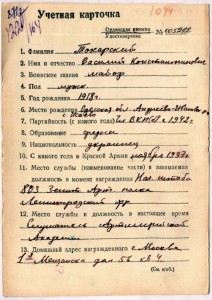 1044
Учетная карточка
Орденская книжка
Удостоверение №
1. Фамилия Токарский
2. Имя и отчество Василий Константинович
3. Воинское звание майор
4. Пол муж
5. Год рождения 1918 г.
6. Место рождения Одесская обл.
7. Партийность (с какого года) чл ВКП(б) с 1942 г.
8. Образование
9. Национальность украинец
10. С какого года в Красной Армии ноября 1937 г.
11. Место службы (наименование части) и занимаемая
должность в момент награждения Нач. штаба
803 Зенит. Арт. полка
Ленинградский фр.
12. Место службы и должность в настоящее время
Слушатель Артиллерийской
Академии
13. Домашний адрес награжденного г. Москва
1я Мещанск. д. 56 кв 4
(См. на об.)